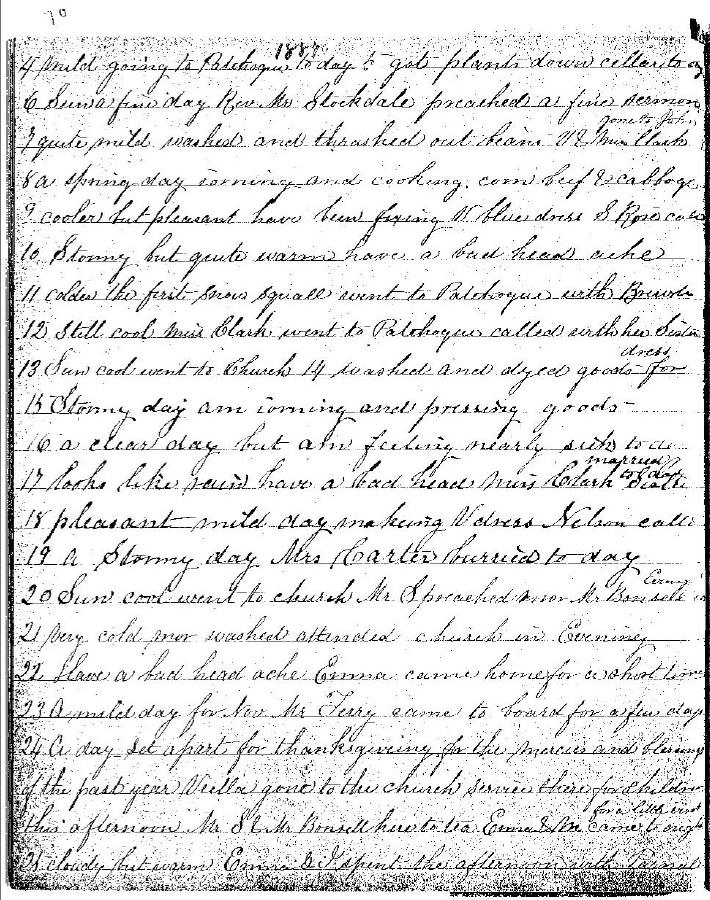 70
1887
4 mild going to Patchogue to day & got plants down cellar to
6 Sun a fine day Rev Mr Stockdale preached a fine sermon
gone to John
7 quite mild washed and thrashed out beans V & Miss Clark
8 a spring day ironing and cooking. corn beef & cabbage
9 cooler but pleasant have been fixing V blue dress S Rose
10 Stormy but quite warm have a bad head ache
11 colder the first snow squall went to Patchogue with
12 Still cool Miss Clark went to Patchogue called with her Sister
dress
13 Sun cool went to Church 14 washed and dyed goods for
15 Stormy day am ironing and pressing goods
16 a clear day but am feeling nearly sick to
married to day
17 looks like rain have a bad head Miss Clark Sister
18 pleasant mild day making V dress Nelson
19 A Stormy day Mrs Carter burried to day
Eveng
20 Sun cool went to church Mr S preached mor Mr Bonsell
21 Very cold mor washed attended church in Evening
22 Have a bad head ache Emma came home for a short time
23 A mild day for Nov Mr Terry came to board for a few days
24 A day set apart for thanksgiving for the mercies and blessing
of the past year Vella gone to the church service there for children
for a little visit
this afternoon Mr S & Mr Bonsell here to tea Emma & came to night
25 cloudy but warm Emma & I spent the afternoon with